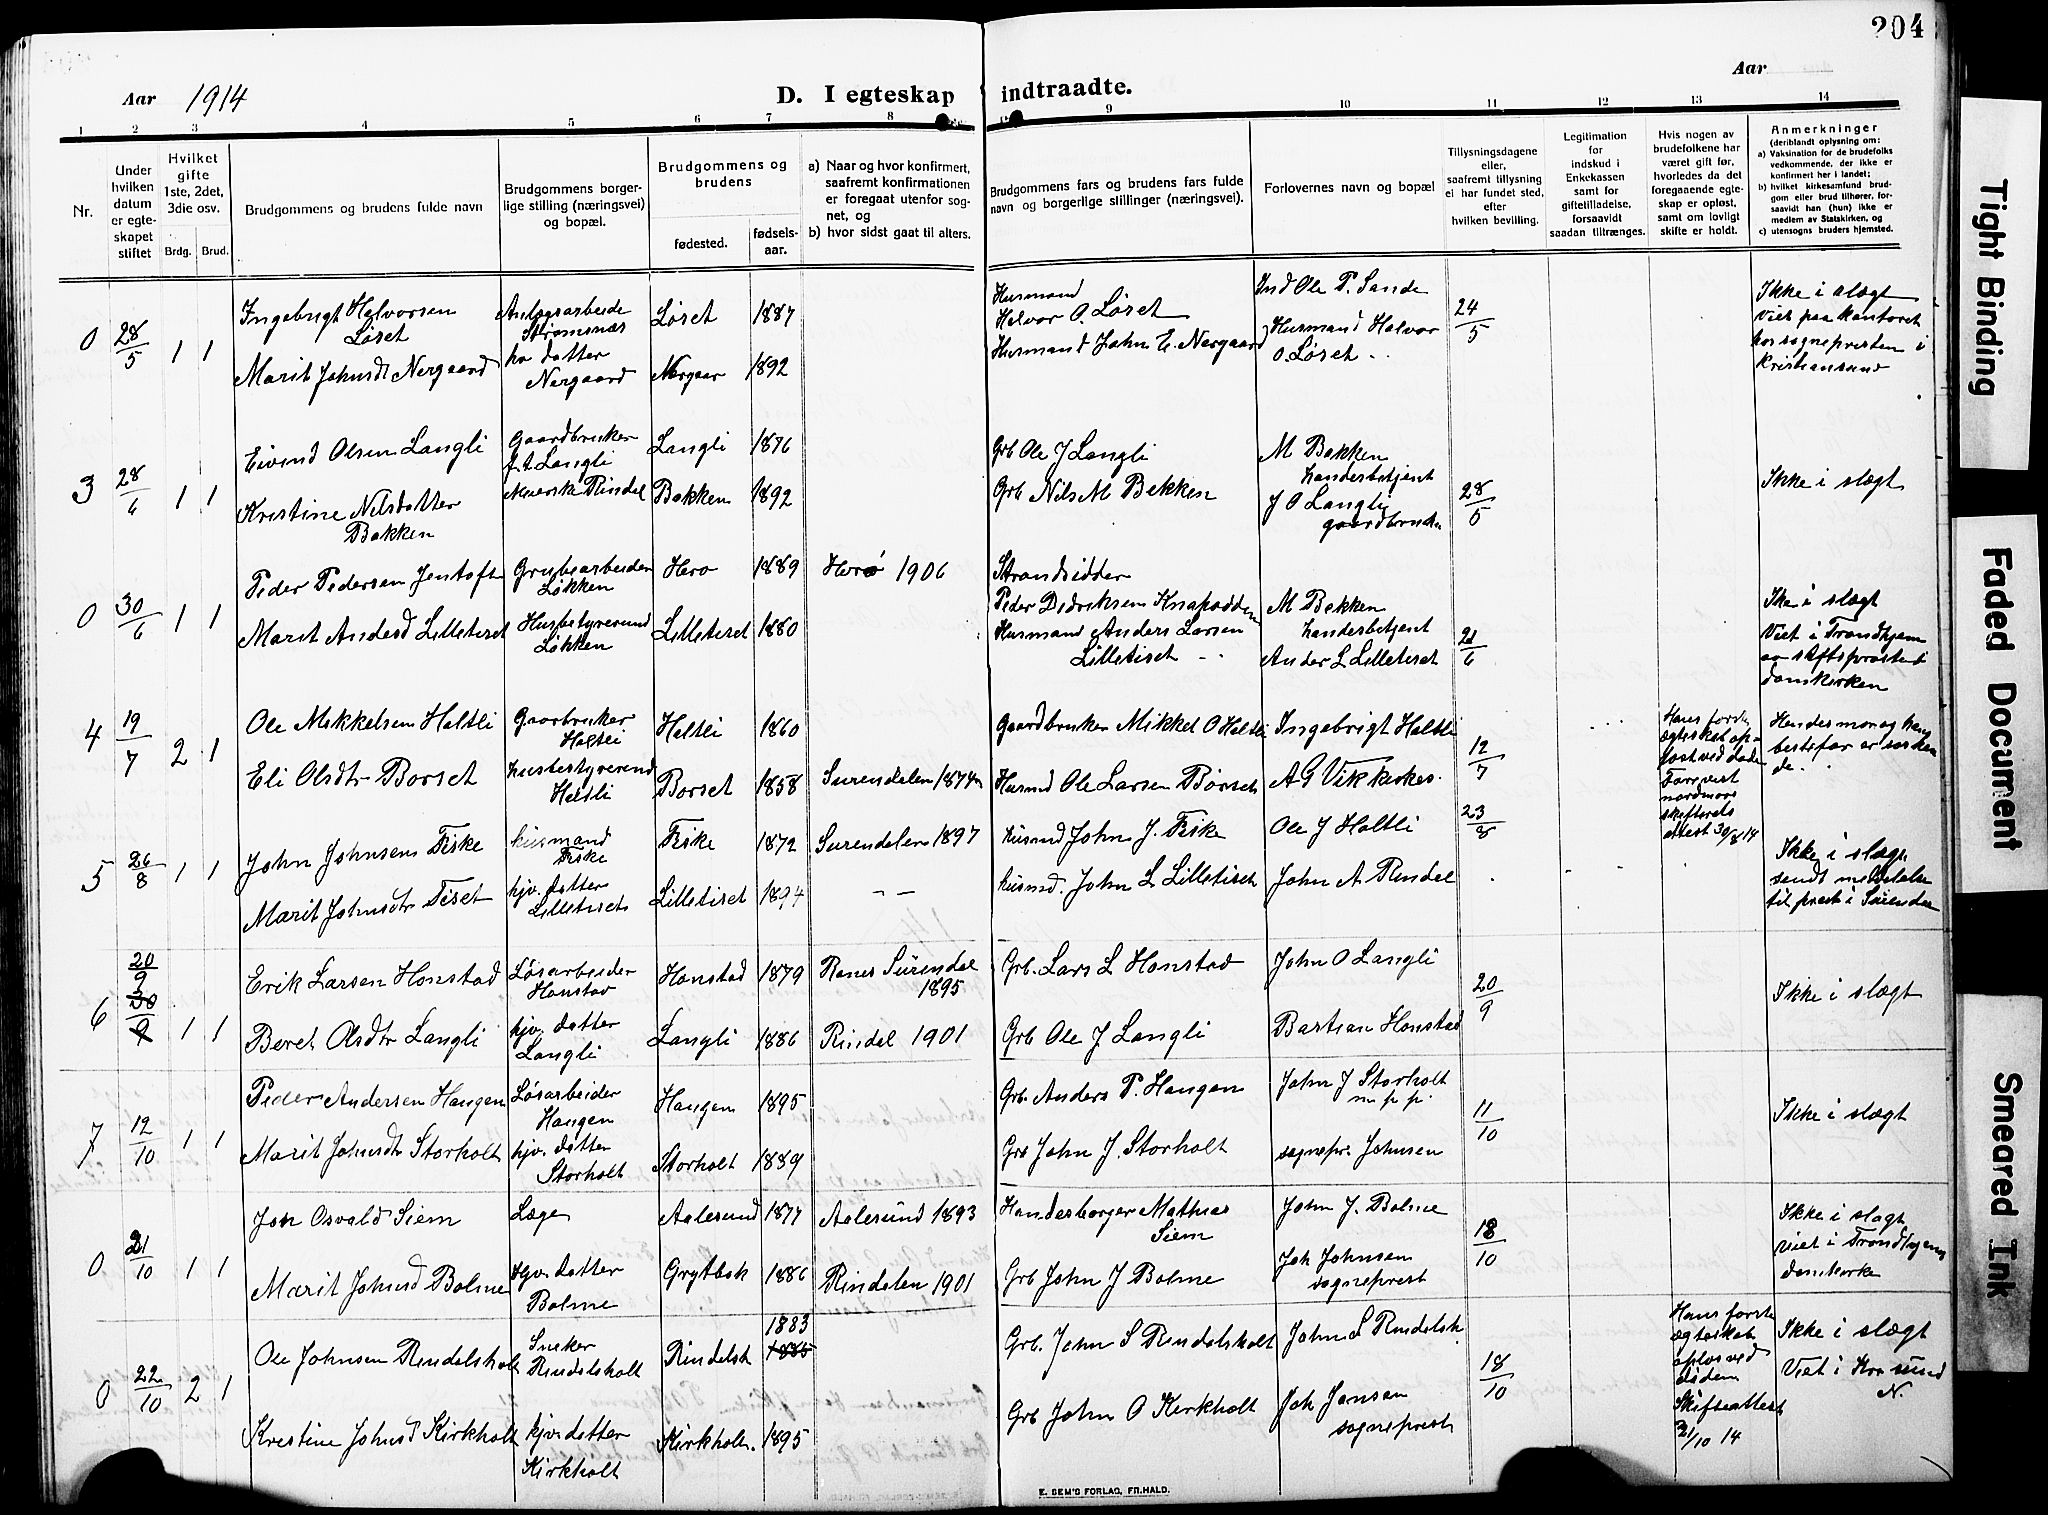 204
Aar 1914
D. I egteskap indtraadte.
Aar
1 2 3 4 5 6 7 8 9 10 11 12 13 14
Nr.
Under
hvilken
datum
er egte-
skapet
stiftet
Hvilket
gifte
1ste, 2det,
3die osv.
Brdg. Brud.
Brudgommens og brudens fulde navn
Brudgommens borger-
lige stilling (næringsvei)
og bopæl.
Brudgommens og
brudens
fødested.
fødsels-
aar.
a) Naar og hvor konfirmert,
saafremt konfirmationen
er foregaat utenfor sog-
net, og
b) hvor sidst gaat til alters.
Brudgommens fars og brudens fars fulde
navn og borgerlige stillinger (næringsvei).
Forlovernes navn og bopæl
Tillysningsdagene
eller,
saafremt tillysning
ei har fundet sted,
efter
hvilken bevilling.
Legitimation
for
indskud i
Enkekassen
samt for
giftetilladelse,
forsaavidt
saadan tiltrænges.
Hvis nogen av
brudefolkene har
været gift før,
hvorledes da det
foregaaende egte-
skap er opløst,
samt om lovligt
skifte er holdt.
Anmerkninger
(deriblandt oplysning om:
a) Vaksination for de brudefolks
vedkommende, der ikke er
konfirmert her i landet;
b) hvilket kirkesamfund brud-
gom eller brud tilhører, for-
saavidt han (hun) ikke er
medlem av Statskirken, og
c) utensogns bruders hjemsted.
0 28/5 1 1
Ingebrigt Halvorsen
Løset
Anlægsarbeide
Strømsnæs
Løset 1887
Husmand
Halvor O. Løset
Ind Ole P. Sande
24/5
Ikke i slægt
Viet paa kontoret
hos sognepresten i
Kristiansund
Marit Johnsdt Nergaard
hv datter
Nergaard
Nergaar 1892
Husmand John E. Nergaard
Husmand Halvor
O. Løset
3 28/6 1 1
Eivind Olsen Langli
Gaardbruker
Langli
Langli 1876
Grb Ole J Langli
M Bakken
Landerbetjent
28/5
Ikke i slægt
Kristine Nilsdatter
Bakken
Rindal
Bakken 1892
Grb Nils M Bekken
J O Langli
gaardbruker
0 30/6 1 1
Peder Pedersen Jentoft
Grubearbeider
Løkken
Herø 1889
Herø 1906
Strandsidder
Peder Didriksen Knapodden
M Bekken
Landerbetjent
21/6
Ike i slægt
Viet i Trondhjem
av stiftsprosten i
domkirken
Marit Andersd Lilletiset
Husbestyrerind
Løkken
Lilletiset 1880
Husmand Anders Larsen
Lilletiset
Ander L Lilletiset
4 19/7 2 1
Ole Mikkelsen Haltli
Gaarbruker
Haltli
Haltli 1860
Gaardbruker Mikkel O Haltli
Ingebrigt Haltli
12/7
Hans første
ægteskab op-
løst ved døden
Forevist
nordmøre
skifterets
attest 30/8 14
Hendes mor og hans
bestefar er søsken
de.
Eli Olsdtr Børset
husbestyrerend
Haltli
Børset 1858
Surendalen 1874
Husmd Ole Larsen Børset
A G Vikkerkes.
5 26/8 1 1
John Johnsen Fiske
husmand
Fiske
Fiske 1872
Surendalen 1897
husmd John J. Fiske
Ole J Haltli
23/8
Ikke i slægt
sendt meddelelse
til prest i Surendal
Marit Johnsdtr Tiset
hjv. datter
Lilletiset
Lilletiset 1894
husmd. John L Lilletiset
John A Rindal
6 20/9 30/9 1 1
Erik Larsen Honstad
Løsarbeider
Honstad
Honstad 1879
Ranes Surendal
1895
Grb. Lars L Honstad
John O Langli
20/9
Ikke i slægt
Beret Olsdtr Langli
hjv. datter
Langli
Langli 1886
Rindal 1901
Grb Ole J Langli
Bastian Honstad
7 12/10 1 1
Peder Andersen Haugen
Løsarbeider
Haugen
Haugen 1895
Grb. Anders P. Haugen
John J Storholt
m. p. p.
11/10
Ikke i slægt
Marit Johnsdt Storholt
hjv. datter
Storholt
Storholt 1889
Grb John J. Storholt
sognepr. Johnsen
0 21/10 1 1
Jon Osvald Siem
Læge
Aalesund 1877
Aalesund 1893
Handesborger Mathias
Siem
John J. Bolme
18/10
Ikke i slægt
Viet i Trondhjems
domkirke
Marit Johnsd Bolme
Hjv. datter
Bolme
Grytbak 1886
Rindalen 1901
Grb John J Bolme
Joh Johnsen
sogneprest
0 22/10 2 1
Ole Johnsen Rindalsholt
Sneker
Rindalsholt
Rindalsh 1883 1885
Grb. John S Rindalsholt
John S Rindalsh.
18/10
Hans første
ægteskab
opløs ved
døden
Skifteattest
21/10 14
Ikke i slægt
Viet i Kra sund
N.
Kristine Johnsd Kirkholt
hjv. datter
Kirkholt
Kirkholt. 1895
Grb John O Kirkholt
Joh Jonsen
sogneprest
E. SEM'S FORLAG, FR.HALD.
Tight Binding
Faded Document
Smeared Ink